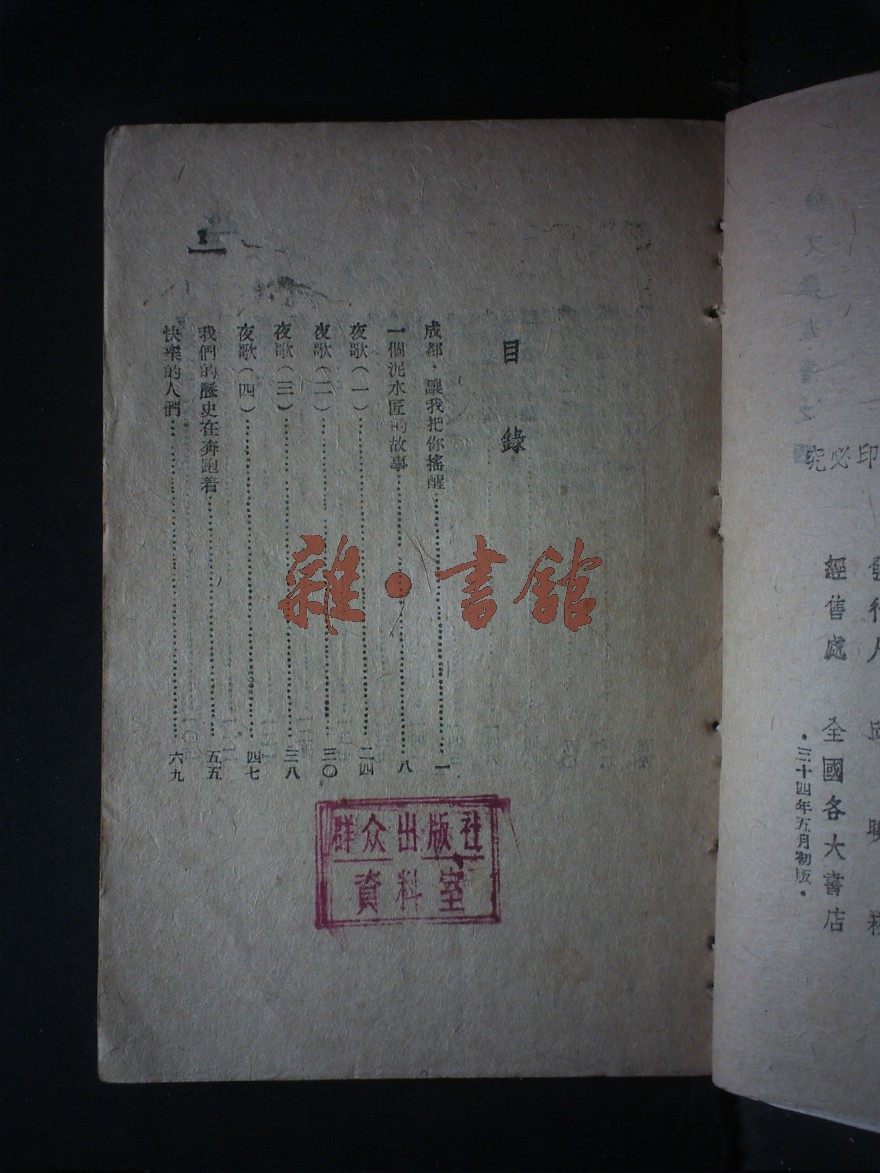 印必究
經售處　全國各大書店
·三十四年五月初版·
目錄
成都，讓我把你搖醒……一
一個泥水匠的故事……八
夜歌（一）……二四
夜歌（二）……三〇
夜歌（三）……三八
夜歌（四）……四七
我們的歷史在奔跑着……五五
快樂的人們……六九
群众出版社
資料室
雜·書館